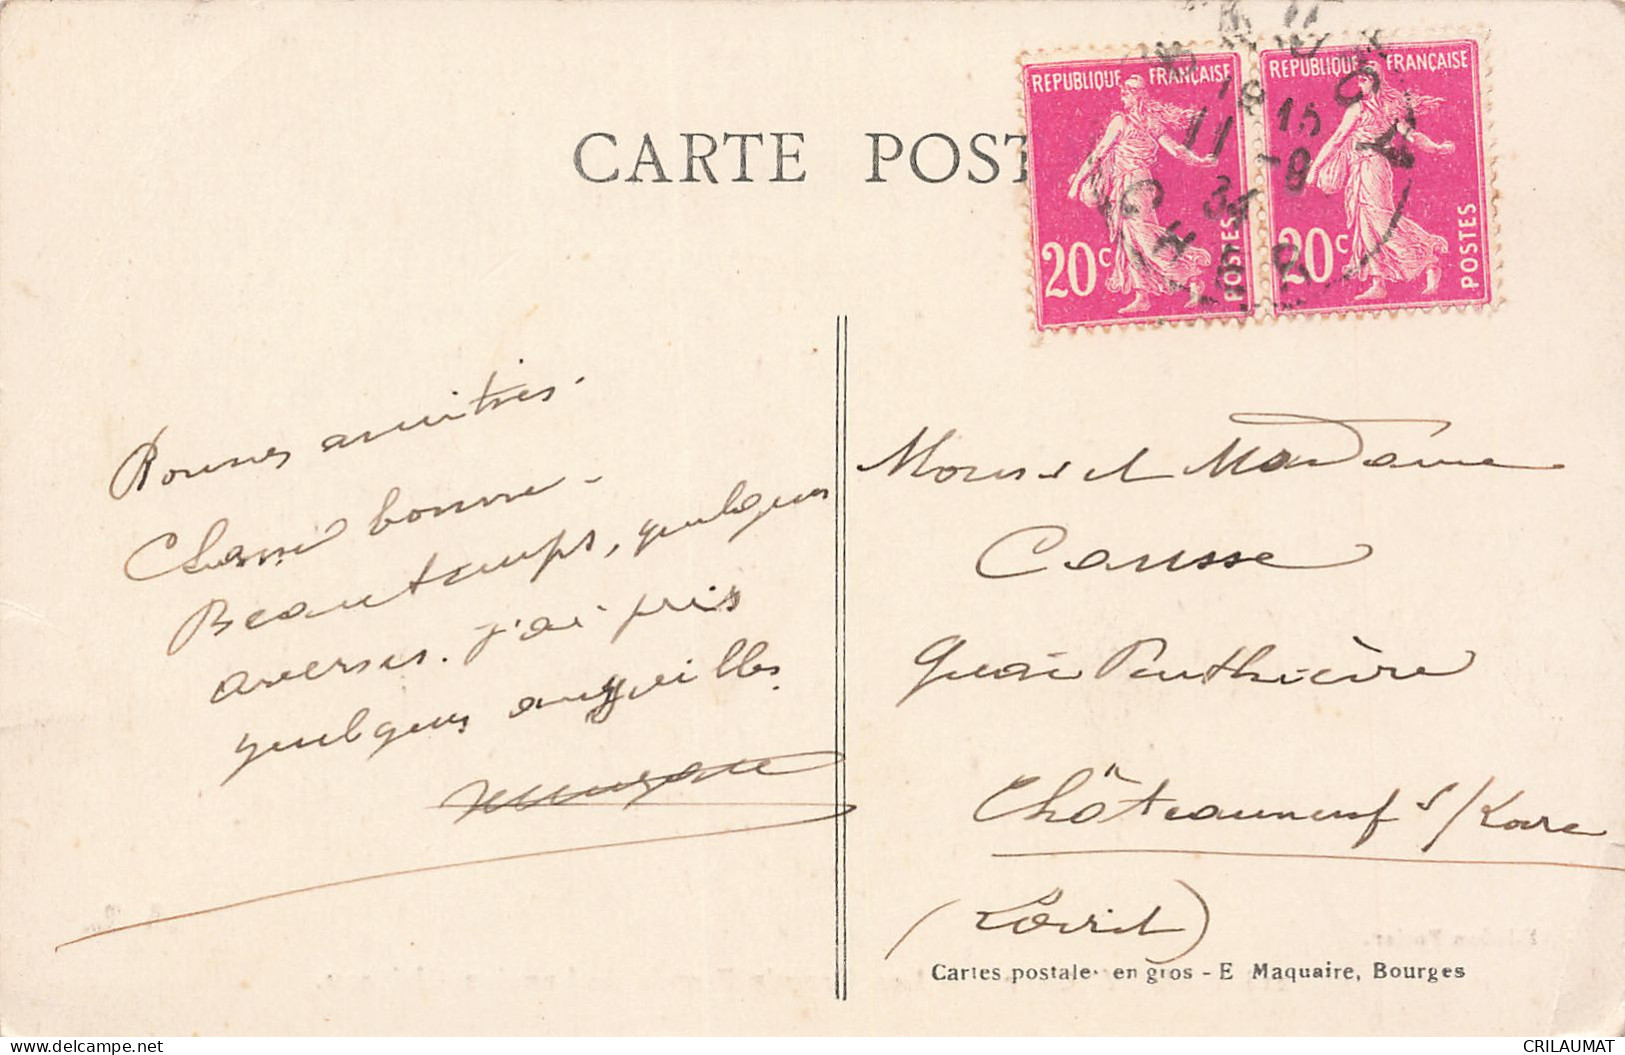 CARTE POST
REPUBLIQUE FRANÇAISE
20c
POSTES
REPUBLIQUE FRANÇAISE
20c
POSTES
18 15
11 -8
34
Bonnes amitiés.
Chasse bonne.
Beau temps, quelques
averses. j'ai pris
quelques anguilles.
Mons et Madame
Causse
Quai Penthièvre
Châteauneuf s/Loire
(Loiret)
Cartes postales en gros - E Maquaire, Bourges
CRILAUMAT